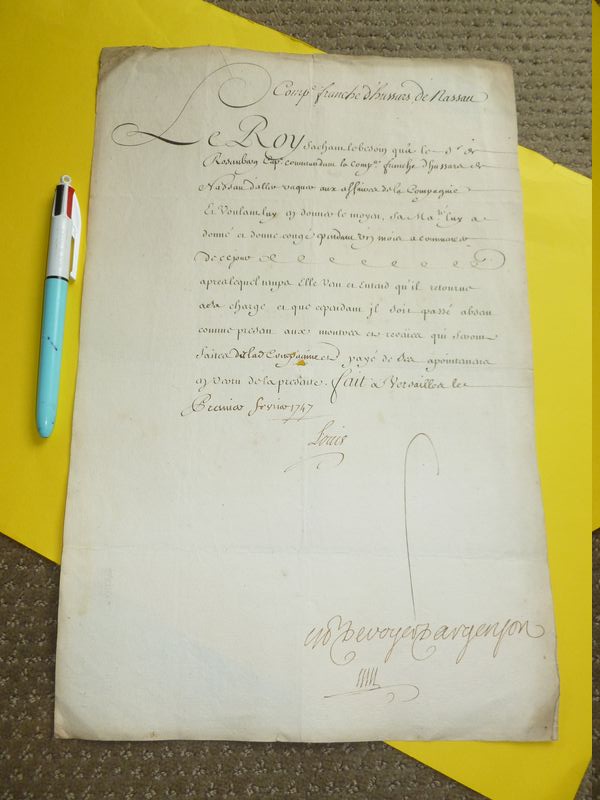 Comp.e franche d'hussars de Nassau
Le Roy sachant le besoin qu'a le S.r de
Rosemberg Cap.e commandant la Comp.e franche d'hussars de
Nassau d'aller vaquer aux affaires de la Compagnie
Et Voulant luy en donner le moyen, Sa Ma.té luy a
donné et donne congé pendant un mois a commencer
de ce jour
apres lequel temps Elle Veut et Entend qu'il retourne
a sa charge et que cependant il soit passé absent
comme present aux montres et reveües qui seront
faites de lad. Compagnie et payé de ses apointemens
en vertu de la presente. Fait a Versailles le
Premier fevrier 1747
Louis
De voyer D'argenson